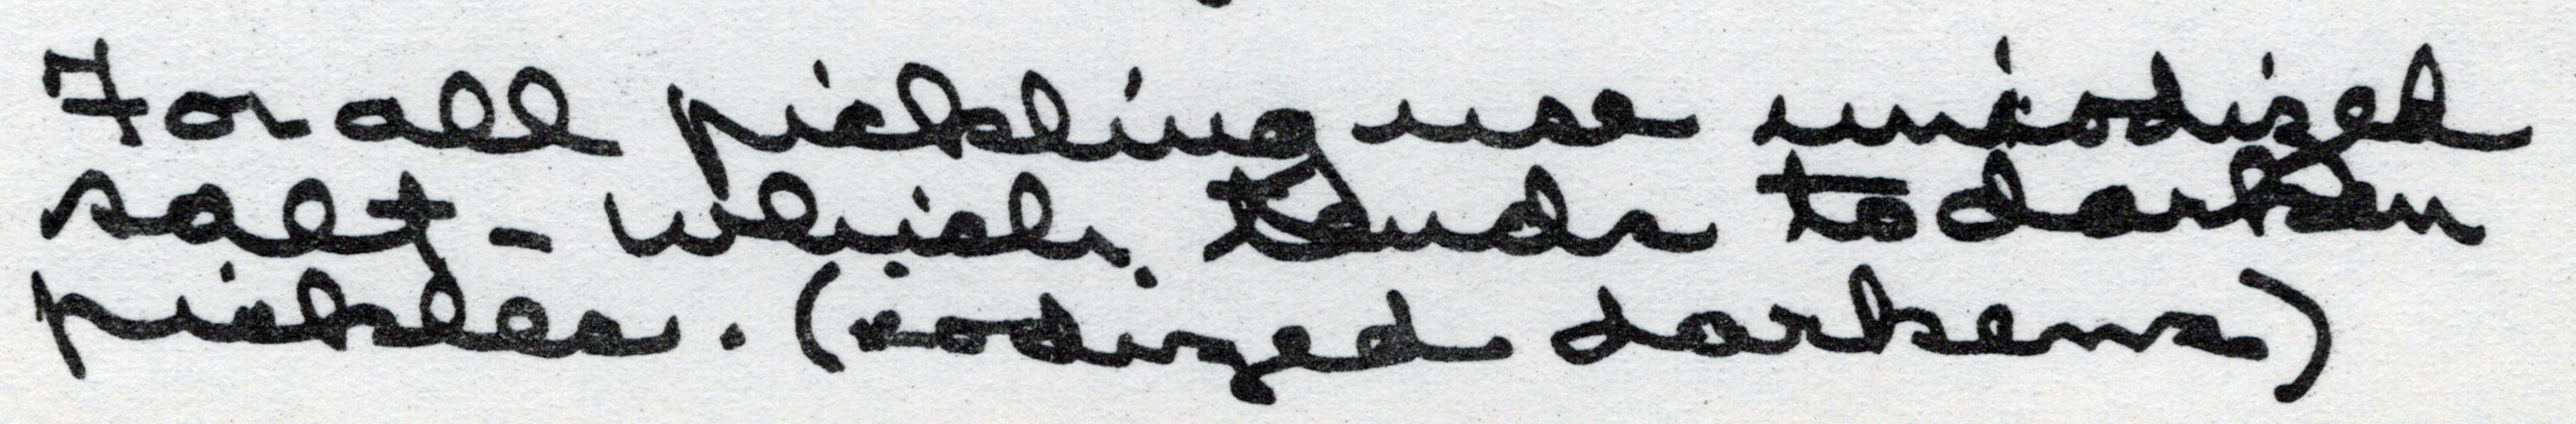 For all pickling use uniodized
salt - which tends to darken
pickles. (iodized darkens)